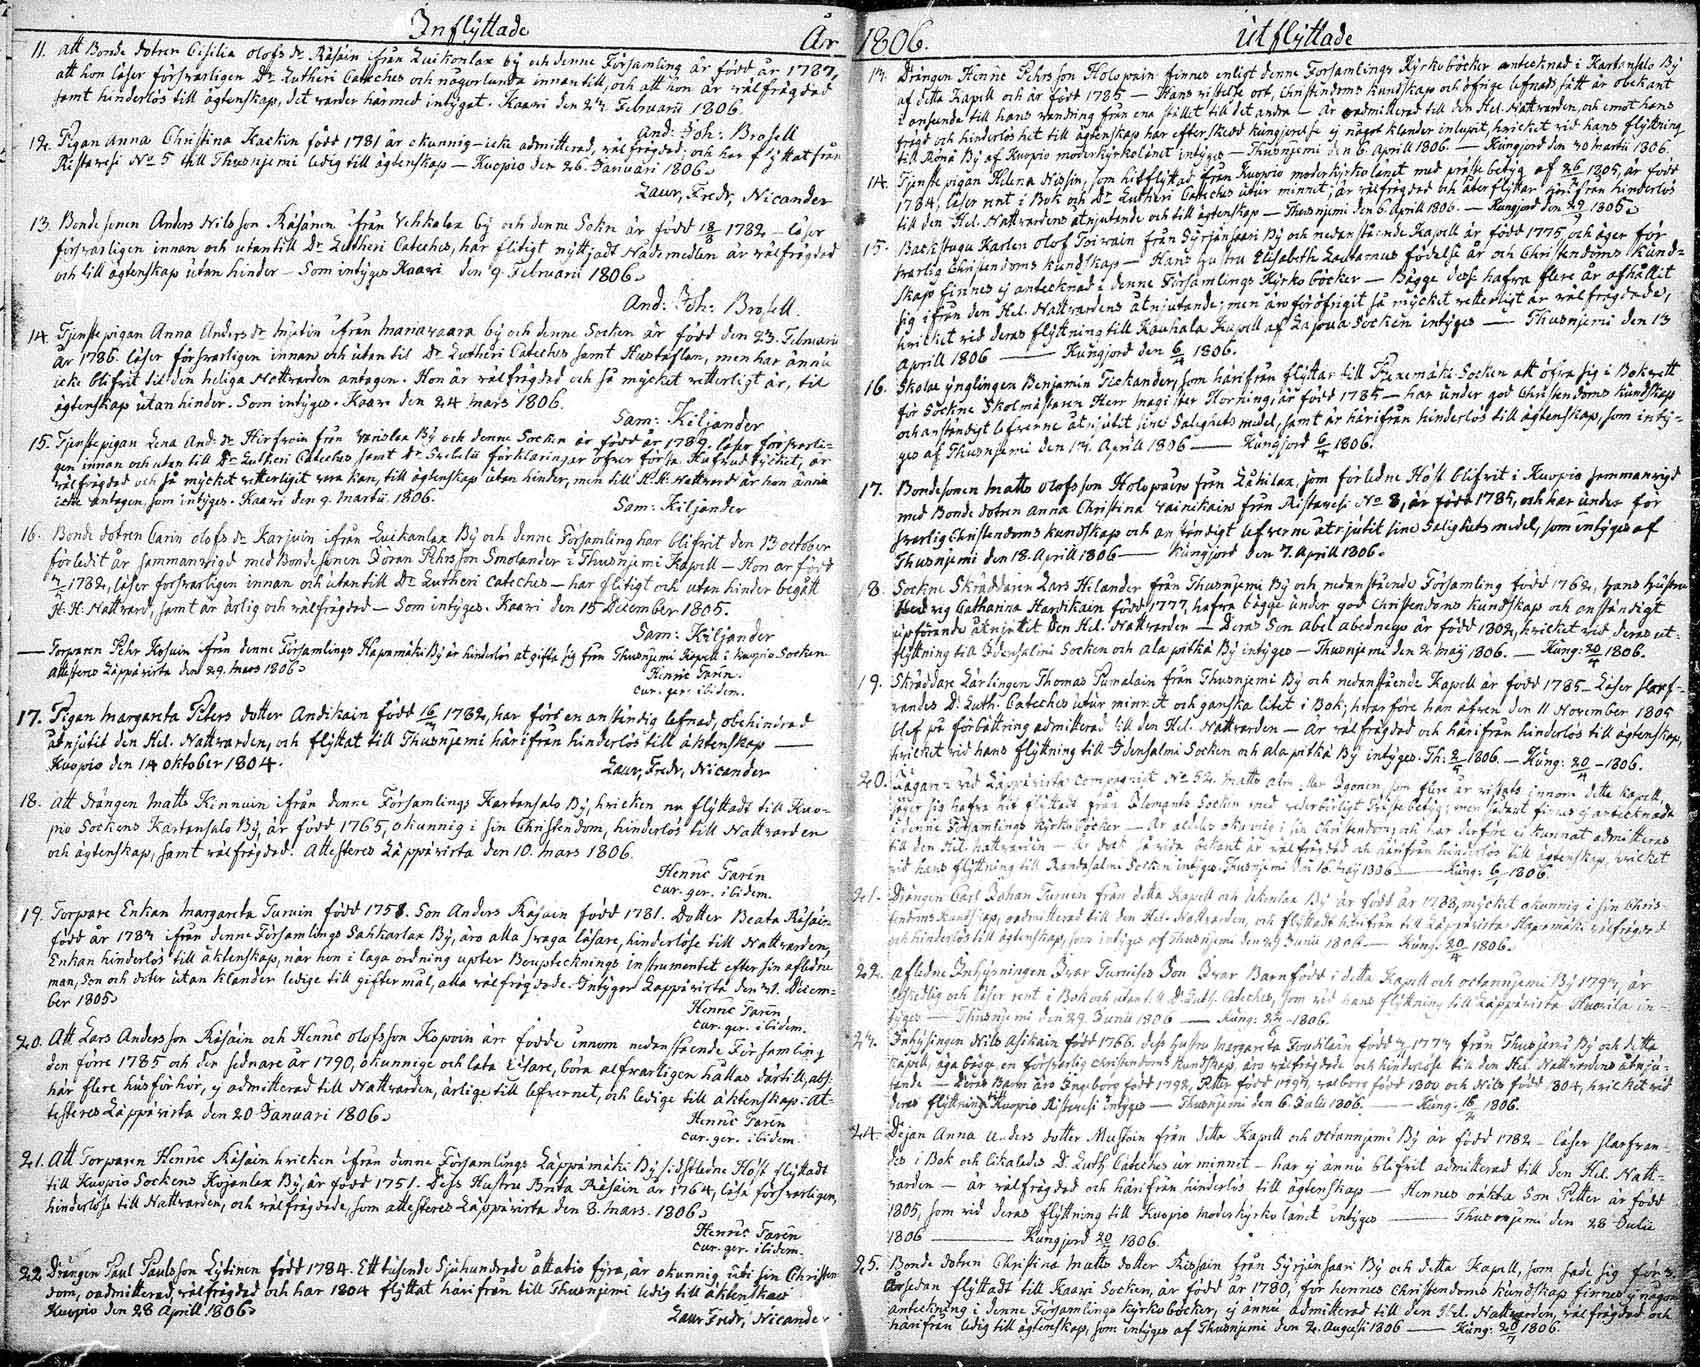 Inflyttade
År
11. Att Bonde dotren Cisilia Olofs dr Räsäin ifrån Luikonlax by och denne Församling är född år 1787,
att hon läser försvarligen Dr Lutheri Cateches och någorlunda innantill, och att hon är välfrägdad
samt hinderlös till ägtenskap, det varder härmed intygat. Kaavi den 27 Februarii 1806.
And: Joh: Brofell
12. Pigan Anna Christina Hackin född 1781 är okunnig icke admitterad, välfrägdad och har flyttat från
Ristavesi No 5 till Thusnjemi ledig till ägtenskap — Kuopio den 26. Januari 1806.
Laur, Fredr, Nicander
13. Bonde sonen Anders Nilsson Räsänen ifrån Vehkalax by och denne Sokn är född 18/8 1782 — läser
försvarligen innan och utantill Dr Lutheri Cateches, har flitigt nyttjadt Nådemedlen är välfrägdad
och till ägtenskap utan hinder — Som intyges Kaavi den 9 Februarii 1806.
And: Joh: Brofell.
14. Tjenstepigan Anna Anders dr Mjetin ifrån Manavaara by och denne Socken är född den 23. Februarii
år 1786. läser försvarligen innan och utan til Dr Lutheri Cateches samt Hustaflan, men har ännu
icke blifvit til den heliga Nattvarden antagen. Hon är välfrägdad och så mycket vetterligt är, til
ägtenskap utan hinder. Som intyges. Kaavi den 24 Mars 1806.
Sam: Kiljander
15. Tjenstepigan Lena And: dr Hirfvoin från Varislax By och denne Socken är född år 1789. läser försvarli-
gen innan och utan till Dr Lutheri Cateches samt Dr Svebelii förklaringar öfver första Hufvudstycket, är
välfrägdad och så mycket vetterligit vara kan, till ägtenskap utan hinder, men till H. H. Nattvard är hon ännu
icke antagen, som intyges. Kaavi den 9. Martii 1806.
Sam: Kiljander
16. Bonde dotren Carin Olofs dr Karjuin ifrån Luikanlax By och denne Församling har blifvit den 13 October
förledit år sammanvigd med Bondesonen Jöran Pehrsson Smolander i Thusnjemi Kapell — Hon är född
1782, läser försvarligen innan och utantill Dr Lutheri Cateches — har flitigt och utan hinder begått
H. H. Nattvard, samt är ärlig och välfrägdad — Som intyges. Kaavi den 15 December 1805.
Sam: Kiljander
— Torparen Pehr Kosuin ifrån denne Församlings Hapamäki By är hinderlös at gifta sig från Thusnjemi Kapell i Kuopio Socken
Attesteres Läppävirta den 29. Mars 1806.
Henric Faren.
cur. ger. ibidem.
17. Pigan Margareta Peters dotter Andikain född 16/2 1782, har fört en anständig lefnad, obehindrad
åtnjutit den Hel. Nattvarden, och flyttat till Thusnjemi härifrån hinderlös till äktenskap —
Kuopio den 14 Oktober 1804.
Laur, Fredr, Nicander
18. Att drängen Matts Kinnuin ifrån denne Församlings Kartansalo By, hvilken nu flyttadt till Kuo-
pio Sockens Kartansalo By, är född 1765, okunnig i sin Christendom, hinderlös till Nattvarden
och ägtenskap, samt välfrägdad. Attesteres Läppävirta den 10. Mars 1806.
Henric Faren
cur. ger. ibidem.
19. Torpare Enkan Margareta Turuin född 1758. Son Anders Räsäen född 1781. Dotter Beata Räsäin
född år 1787 ifrån denne Församlings Sahkarlax By, äro alla svaga läsare, hinderlöse till Nattvarden,
Enkan hinderlös till äktenskap, när hon i laga ordning upter Boupptecknings instrumentet efter sin afledne
man, Son och doter utan klander ledige till giftermål, alla välfrägdade. Intygar Läppävirta den 31. Decem-
ber 1805.
Henric Faren
cur. ger. ibidem.
20. Att Lars Andersson Räsäin och Henric Olofsson Kopoin äro födde innom nedanstående Församling
den förre 1785 och den sednare år 1790, okunnige och lata Läsare, böra alfvarligen hållas därtill, abs:
här flere husförhör, ej admitterad till Nattvarden, ärlige till lefvernet, och ledige till äktenskap. At-
testeres Läppävirta den 20 Januari 1806.
Henric Faren
cur. ger. ibidem.
21. Att Torparen Henric Räsäin hvilken ifrån denne Församlings Läppämäki By sidstledne Höst flyttadt
till Kuopio Sockens Kojanlax By, är född 1751. Dess Hustru Brita Räsäin år 1764, läsa försvarligen,
hinderlöse till Nattvarden, och välfrägdade, som attesteres Läppävirta den 8. Mars. 1806.
Henric Faren
cur. ger. ibidem.
22 Drängen Paul Paulsson Lytinen född 1784. Ett tusende Sjuhundrade åttatio fyra, är okunnig uti sin Christen
dom, oadmitterad, välfrägdad och har 1804 flyttat härifrån till Thusnjemi ledig till äktenskap
Kuopio den 28 Aprill 1806.
Laur Fredr, Nicander
1806.
Utflyttade
13. Drängen Henric Pehrsson Holopain finnes enligt denne Församlings Kyrkoböcker antecknad i Kartansalo By
af detta Kapell och är född 1785 — Hans vistelse ort, Christendoms kundskap och öfrige lefnads sätt är obekant
i anseende till hans vandring från ena stället till det andra — Är oadmitterad till den Hel. Nattvarden, och emot hans
frägd och hinderlöshet till ägtenskap har efter skedd kungjorelse ej något klander inlupit, hvilket vid hans flyttning
till Roma By af Kuopio moderkyrkolänet intyges — Thusnjemi den 6. Aprill 1806. — Kungjord den 30 Martii 1806.
14. Tjenste pigan Helena Nissin, som hitflyttad från Kuopio moderkyrkolänet med präste betyg af 26/ 1805, är född
1784, läser rent i Bok och Dr Lutheri Cateches utur minnet, är välfrägdad och återflyttar härifrån hinderlös
till den Hel. Nattvardens åtnjutande och till ägtenskap — Thusnjemi den 6. Aprill 1806. — Kungjord den 29/ 1805.
15. Backstugu Karlen Olof Toivain från Syrjänsaari By och nedanstående Kapell är född 1775, och äger för
svarlig Christendoms kundskap — Hans hustru Elisabeth Lautamus födelse år och Christendoms kund-
skap finnes ej antecknad i denne Församlings Kyrko böcker — Bägge desse hafva flere år afhållit
sig ifrån den Hel. Nattvardens åtnjutande; men äro föröfrigit så mycket vetterligt är välfrägdade,
hvilket vid deras flyttning till Kauhala Kapell af Lapoua Socken intyges — Thusnjemi den 13
Aprill 1806 — Kungjord den 6/4 1806.
16. Skole ynglingen Benjamin Teckander, som härifrån flyttar till Piexemäki Socken att öfva sig i Bokvett
för Sockne Skolmästaren Herr Magister Horning, är född 1785 — har under god Christendoms kundskap
och anständigt lefverne åtnjutit sine Salighets medel, samt är härifrån hinderlös till ägtenskap, som inty-
ges af Thusnjemi den 17. Aprill 1806 — Kungjord 6/4 1806.
17. Bondesonen Matts Olofsson Holopain från Lähilax, som förledne Höst blifvit i Kuopio sammanvigd
med Bonde dotren Anna Christina Vainikain från Ristavesi No 8, är född 1785, och har under för
svarlig Christendoms kundskap och anständigt lefverne åtnjutit sine Salighets medel, som intyges af
Thusnjemi den 18. Aprill 1806 — Kungjord den 7. Aprill 1806.
18. Sockne Skräddaren Lars Helander från Thusnjemi By och nedanstående Församling född 1762, hans hustru
Hedvig Catharina Hardikain född 1777, hafva bägge under god Christendoms kundskap och anständigt
upförande åtnjutit den Hel. Nattvarden — Deras Son Abel Abednego är född 1802, hvilket vid deras ut-
flyttning till Idensalmi Socken och Ala pitkä By intyges — Thusnjemi den 2 Maij 1806. — Kung: 20/4 1806.
19. Skräddare Lärlingen Thomas Pumalain från Thusnjemi By och nedanstående Kapell är född 1785 — Läser slarf-
vandes Dr Luth. Cateches utur minnet och ganska litet i Bok, hvarföre han äfven den 11 November 1805
blef på förbättring admitterad till den Hel. Nattvarden — Är välfrägdad och härifrån hinderlös till ägtenskap,
hvilket vid hans flyttning till Idensalmi Socken och Ala pitkä By intyges. Th: 2/5 1806. — Kung: 20/4 — 1806.
20. Jägaren vid Läppävirta Compagniet No 52. Matts Alm eller Igonen, som förre år vistats innom detta Kapell,
säger sig hafva hit flyttats från Ilomants Socken med vederbörligt Präste betyg; men sådant finnes ej antecknadt
i denne Församlings Kyrkoböcker — Är aldeles okunnig i sin Christendom, och har derföre ej kunnat admitteras
till den Hel. Nattvarden — Är dock så vida bekant är välfrägdad och härifrån hinderlös till ägtenskap, hvilket
vid hans flyttning till Randasalmi Socken intyges. Thusnjemi den 16. Maij 1806. — Kung: 6/ 1806.
21. Drängen Carl Johan Turuen från detta Kapell och Lekonlax By är född år 1788, mycket okunnig i sin Chris-
tendoms kundskap, oadmitterad till den Hel. Nattvarden, och flyttade härifrån till Läppävirta Hapamäki välfrägdad
och hinderlös till ägtenskap, som intyges af Thusnjemi den 29 Junii 1806 — Kung: 20/4 1806.
22. Afledne Inhysningen Ivar Turuises Son Ivar Barn född i detta Kapell och Ostannjemi By 1793, är
beskedlig och läser rent i Bok och utan till Dr Luth. Cateches, som vid hans flyttning till Läppävirta Huorila in-
tyges — Thusnjemi den 29. Junii 1806 — Kung: 22/ 1806.
23. Inhysingen Nils Asikain född 1766. dess hustru Margareta Toudilain född 1777 från Thusnjemi By och detta
Kapell, äga bägge en försvarlig Christendoms kundskap, äro välfrägdade och hinderlöse till den Hel. Nattvardens åtnju-
tande — Deras Barn äro Ingeborg född 1792, Petter född 1797, Valborg född 1800 och Nils född 1804, hvilket vid
deras flyttning till Kuopio Ristavesi intyges — Thusnjemi den 6. Julii 1806. — Kung: 16/ 1806.
24. Dejan Anna Anders dotter Mustoin från detta Kapell och Ostannjemi By är född 1782 — läser slarfvan-
des i Bok och likaledes Dr Luth Cateches ur minnet — har ej ännu blifvit admitterad till den Hel. Natt-
varden — är välfrägdad och härifrån hinderlös till ägtenskap — Hennes oäkta Son Petter är född
1805, som vid deras flyttning till Kuopio moderkyrko länet intyges — Thusnjemi den 28 Julii
1806 — Kungjord 20/ 1806.
25. Bonde dotren Christina Matts dotter Kissain från Syrjänsaari By och detta Kapell, som sade sig för 3.
år sedan flyttadt till Kaavi Socken, är född år 1780, för hennes Christendoms kundskap finnes ej någon
anteckning i denne Församlings kyrkoböcker, ej ännu admitterad till den Hel. Nattvarden, välfrägdad och
härifrån ledig till ägtenskap, som intyges af Thusnjemi den 2. Augusti 1806 — Kung: 20/7 1806.